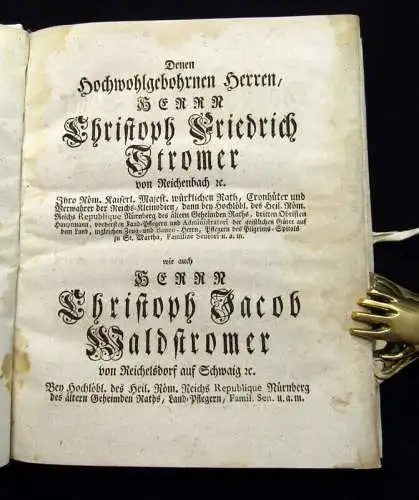 Denen
Hochwohlgebohrnen Herren,
HERRN
Christoph Friedrich
Stromer
von Reichenbach ꝛc.
Ihro Röm. Kaiserl. Majest. würklichen Rath, Cronhüter und
Verwahrer der Reichs-Kleinodien, dann bey Hochlöbl. des Heil. Röm.
Reichs Republique Nürnberg des ältern Geheimden Raths, dritten Obristen
Hauptmann, vordersten Land-Pflegern und Administratori der geistlichen Güter auf
dem Land, ingleichen Zeug-und Herrn, Pflegern des Pilgrims-Spitals
zu St. Martha, Familiae Seniori u. a. m.
wie auch
HERRN
Christoph Jacob
Waldstromer
von Reichelsdorf auf Schwaig ꝛc.
Bey Hochlöbl. des Heil. Röm. Reichs Republique Nürnberg
des ältern Geheimden Raths, Land-Pflegern, Famil. Sen. u. a. m.